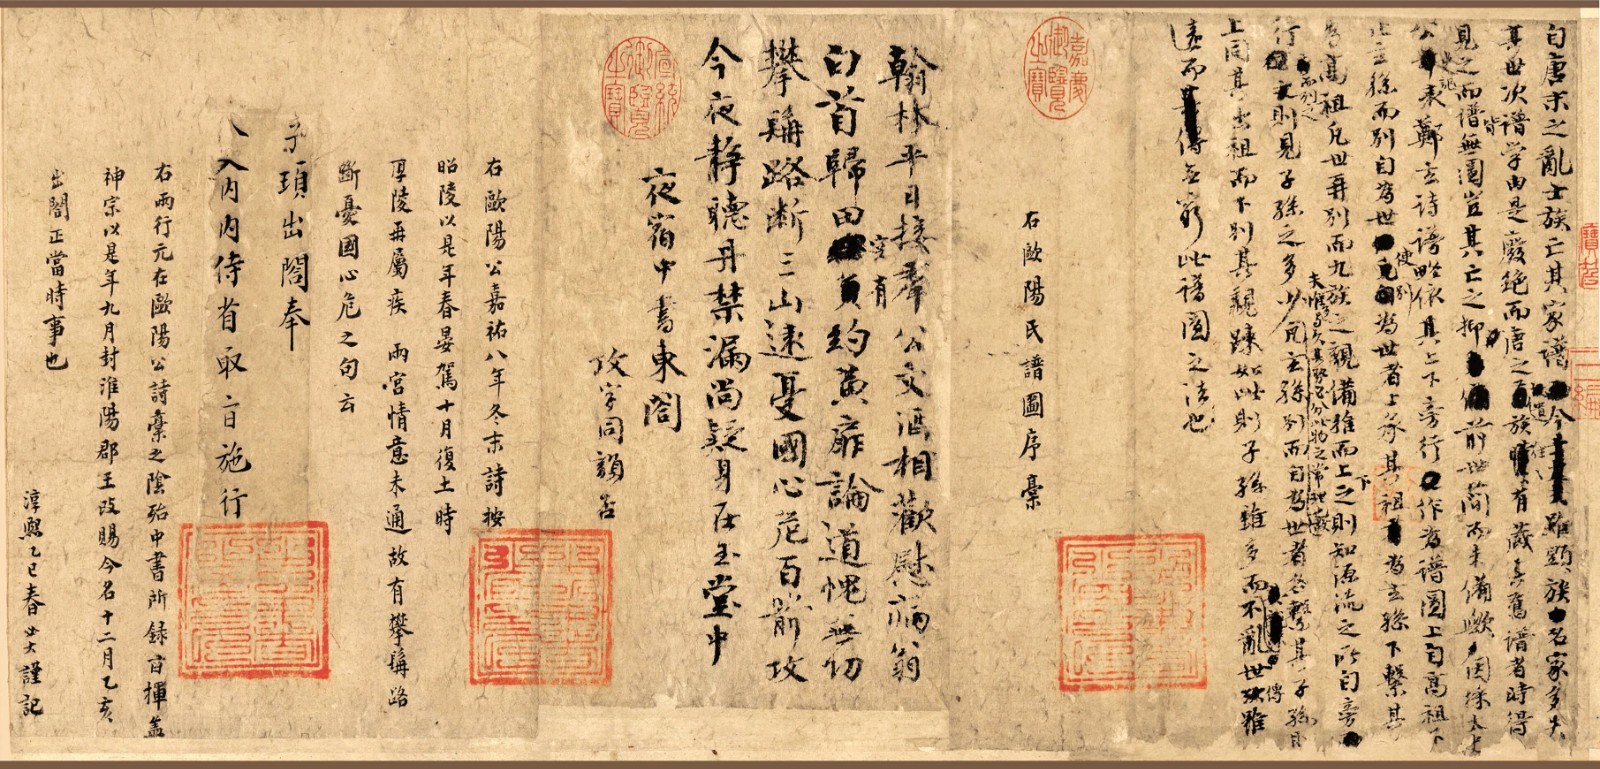 自唐末之亂士族亡其家譜今雖顯族名家多失
其世次譜学由是廢絶而唐之遺族往往有藏其舊譜者時得
見之而譜皆無圖豈其亡之抑前世簡而未備歟因採太史
公史記表鄭玄詩譜略依其上下旁行作為譜圖上自高祖下
止玄孫而别自為世使别為世者上承其祖為玄孫下繫其
孫為高祖凡世再别而九族之親備推而上之則知源流之所自旁
行而列之則見子孫之多少夫惟多與久其勢必分此物之常理也凡玄孫别而自為世者各繫其子孫則
上同其出祖而下别其親踈如此則子孫雖多而不亂世傳雖
遠而無窮此譜圖之法也
右歐陽氏譜圖序稾
嘉慶御覽之寶
翰林平日接群公文酒相歡慰病翁
白首歸田空有約黄扉論道愧無功
攀髯路斷三山遠憂國心危百箭攻
今夜静聴丹禁漏尚疑身在玉堂中
夜宿中書東閤
攻字同韻否
宣統御覽之寶
右歐陽公嘉祐八年冬末詩按
昭陵以是年春晏駕十月復土時
厚陵再屬疾兩宮情意未通故有攀髯路
斷憂國心危之句云
頊出閤奉
入内内侍省取旨施行
右兩行元在歐陽公詩稾之陰殆中書所録旨揮盖
神宗以是年九月封淮陽郡王改賜今名十二月乙亥
出閤正當時事也
淳熙乙巳春必大謹記